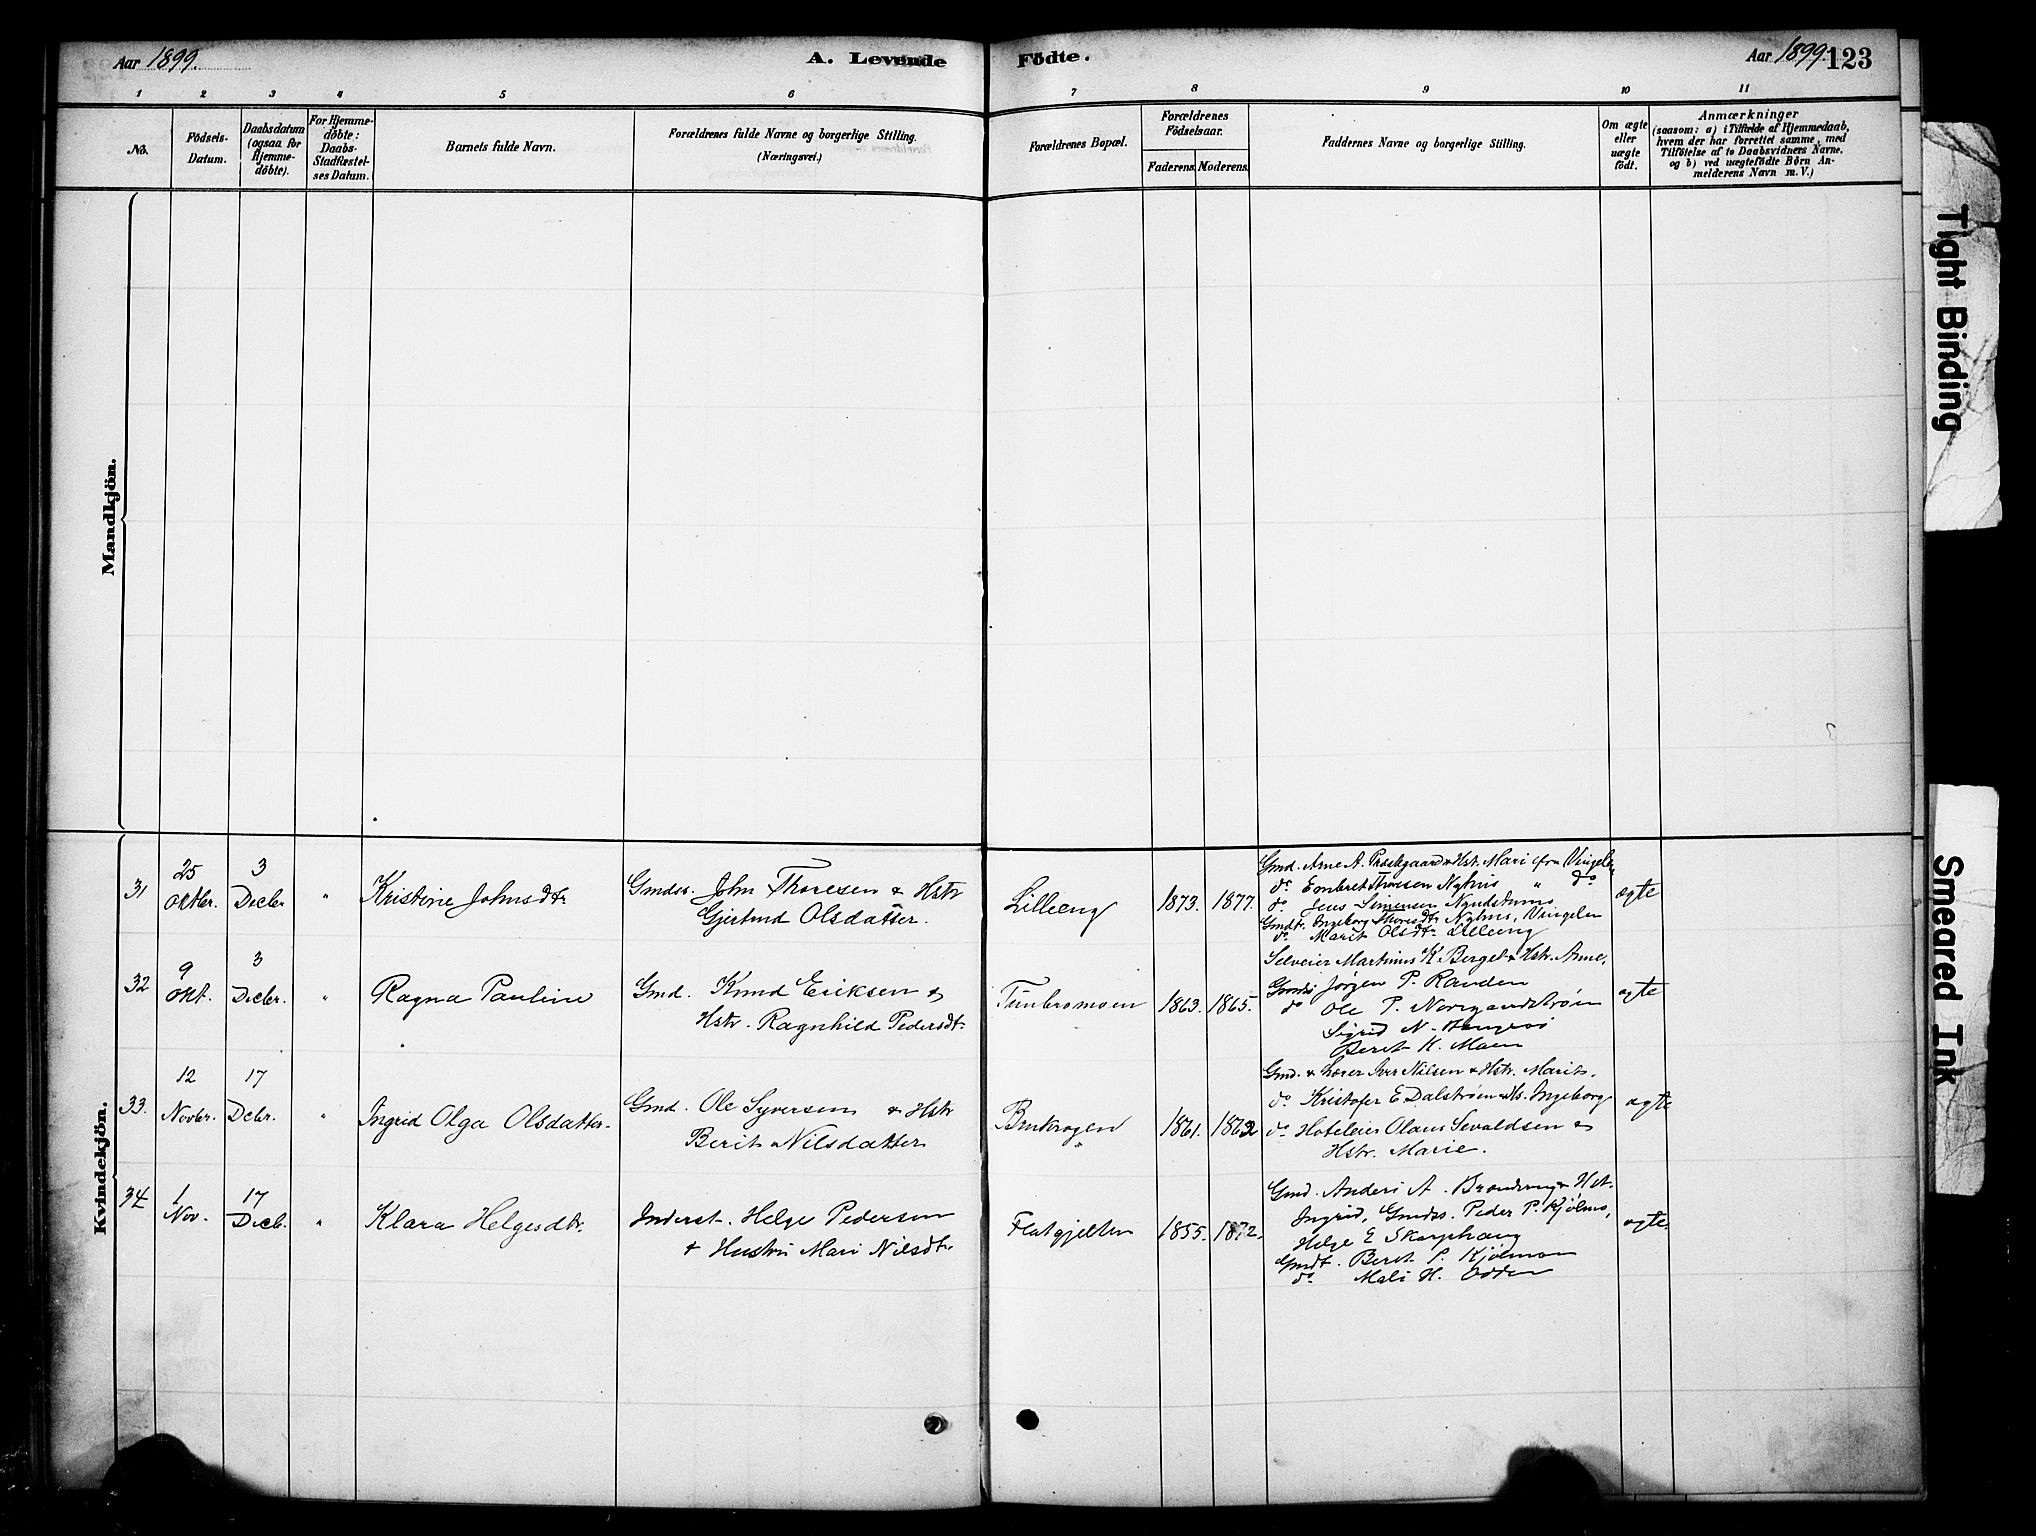 Aar 1899.
A. Levende Födte.
Aar 1899.
123
1 2 3 4 5 6 7 8 9 10 11
No.
Födsels-
Datum.
Daabsdatum
(ogsaa for
Hjemme-
döbte).
For Hjemme-
döbte:
Daabs-
Stadfæstel-
ses Datum.
Barnets fulde Navn.
Forældrenes fulde Navne og borgerlige Stilling.
(Næringsvei.)
Forældrenes Bopæl.
Forældrenes
Födselsaar.
Faderens. Moderens.
Faddernes Navne og borgerlige Stilling.
Om ægte
eller
uægte
födt.
Anmærkninger
(saasom: a) i Tilfælde af Hjemmedaab,
hvem der har forrettet samme, med
Tilföielse af to Daabsvidners Navne.
og b) ved uægtefödte Börn An-
melderens Navn m. V.)
Mandkjön.
Kvindekjön.
31
25
Oktbr.
3
Decbr
"
Kristine Johnsdtr
Gmdss. John Thoresen & Hstr
Gjertrud Olsdatter.
Lilleeng
1873. 1877.
Gmd. Arne A. Præstgaard & Hst. Mari fra Vingelen
do Embret Thoresen Nyhus " do
do Jens Simensen
Gmdtr. Ingeborg Thoresdtr Nyhus, Vingelen
do Marit Olsdtr Lilleeng
ægte
32
9
Okt.
3
Decbr.
"
Ragna Pauline
Gmd. Knud Eriksen &
Hstr. Ragnhild Pedersdtr
1863. 1865.
Selveier Martinus K. Berget & Hstr. Anne,
Gmdss Jørgen P. Randen
do Ole P.
Sigrid N.
Beret K. Moen
ægte
33.
12
Novbr.
17
Dcbr.
"
Ingrid Olga Olsdatter.
Gmd. Ole Syversen & Hstr
Berit Nilsdatter
Brukrogen
1861. 1862
Gmd. & Lærer Iver Nilsen & Hstr. Marit,
do Kristofer E Dalstrøen & Hs. Ingeborg
do Hoteleier Olaus Sevaldsen &
Hstr. Marie.
ægte
34
1
Nov.
17
Decb.
"
Klara Helgesdtr.
Inderst. Helge Pedersen
& Hustru Mari Nilsdtr
Flatgjelten
1855. 1872.
Gmd. Anders A. & Hst.
Ingrid, Gmdss. Peder P. Kjølmo,
Helge E Skarphaug
Gmdt. Beret P. Kjølmoen
do Mali H. Odden
ægte
Tight Binding
Smeared Ink